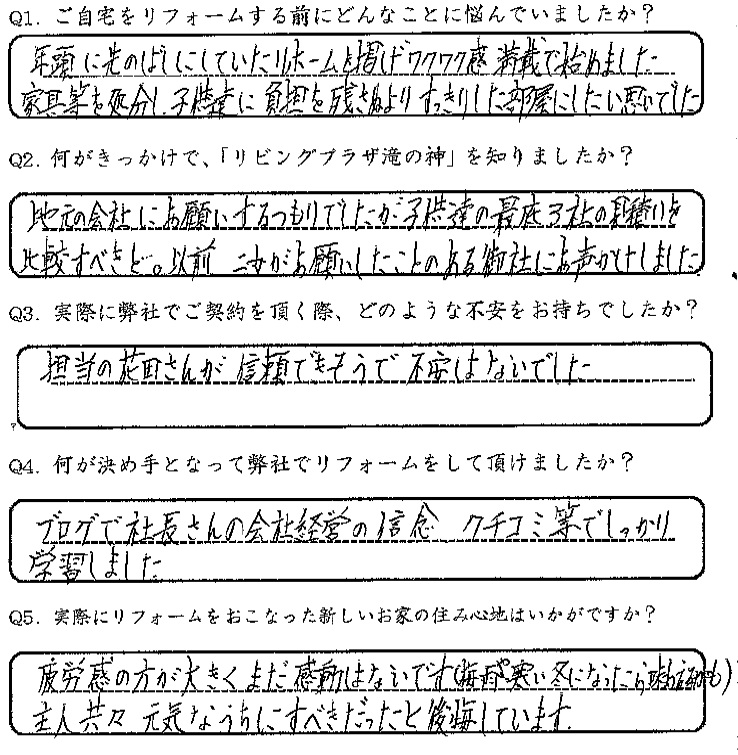 Q1. ご自宅をリフォームする前にどんなことに悩んでいましたか?
年頭に先のばしにしていたリホームを掲げワクワク感満載で始めました
家具等を処分し、子供達に負担を残さぬよりすっきりした部屋にしたい思いでした
Q2. 何がきっかけで、「リビングプラザ滝の神」を知りましたか?
地元の会社にお願いするつもりでしたが子供達の最底3社の見積りを
比較すべきと。以前 二女がお願いしたことのある御社にお声かけしました
Q3. 実際に弊社でご契約を頂く際、どのような不安をお持ちでしたか?
担当の花田さんが信頼できそうで不安はないでした
Q4. 何が決め手となって弊社でリフォームをして頂けましたか?
ブログで社長さんの会社経営の信念 クチコミ等でしっかり
学習しました
Q5. 実際にリフォームをおこなった新しいお家の住み心地はいかがですか?
疲労感の方が大きくまだ感動はないです(梅雨や寒い冬になったら味わえるかも)
主人共々 元気なうちにすべきだったと後悔しています.